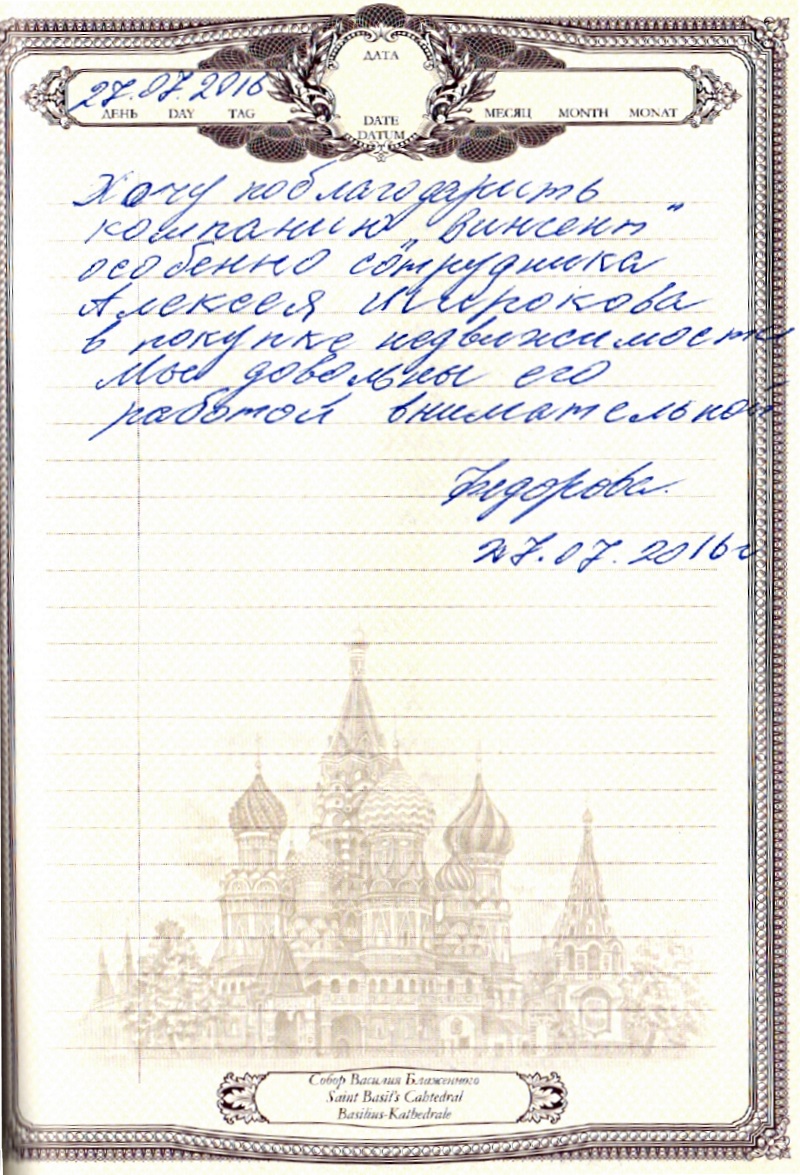 ДАТА
27.07.2016
ДЕНЬ DAY TAG
DATE
DATUM
МЕСЯЦ MONTH MONAT
Хочу поблагодарить
компанию „Винсент"
особенно сотрудника
Алексея Широкова
в покупке недвижимости
Мы довольны его
работой внимательной
Федорова.
27.07.2016 г
Собор Василия Блаженного
Saint Basil's Cahtedral
Basilius-Kathedrale